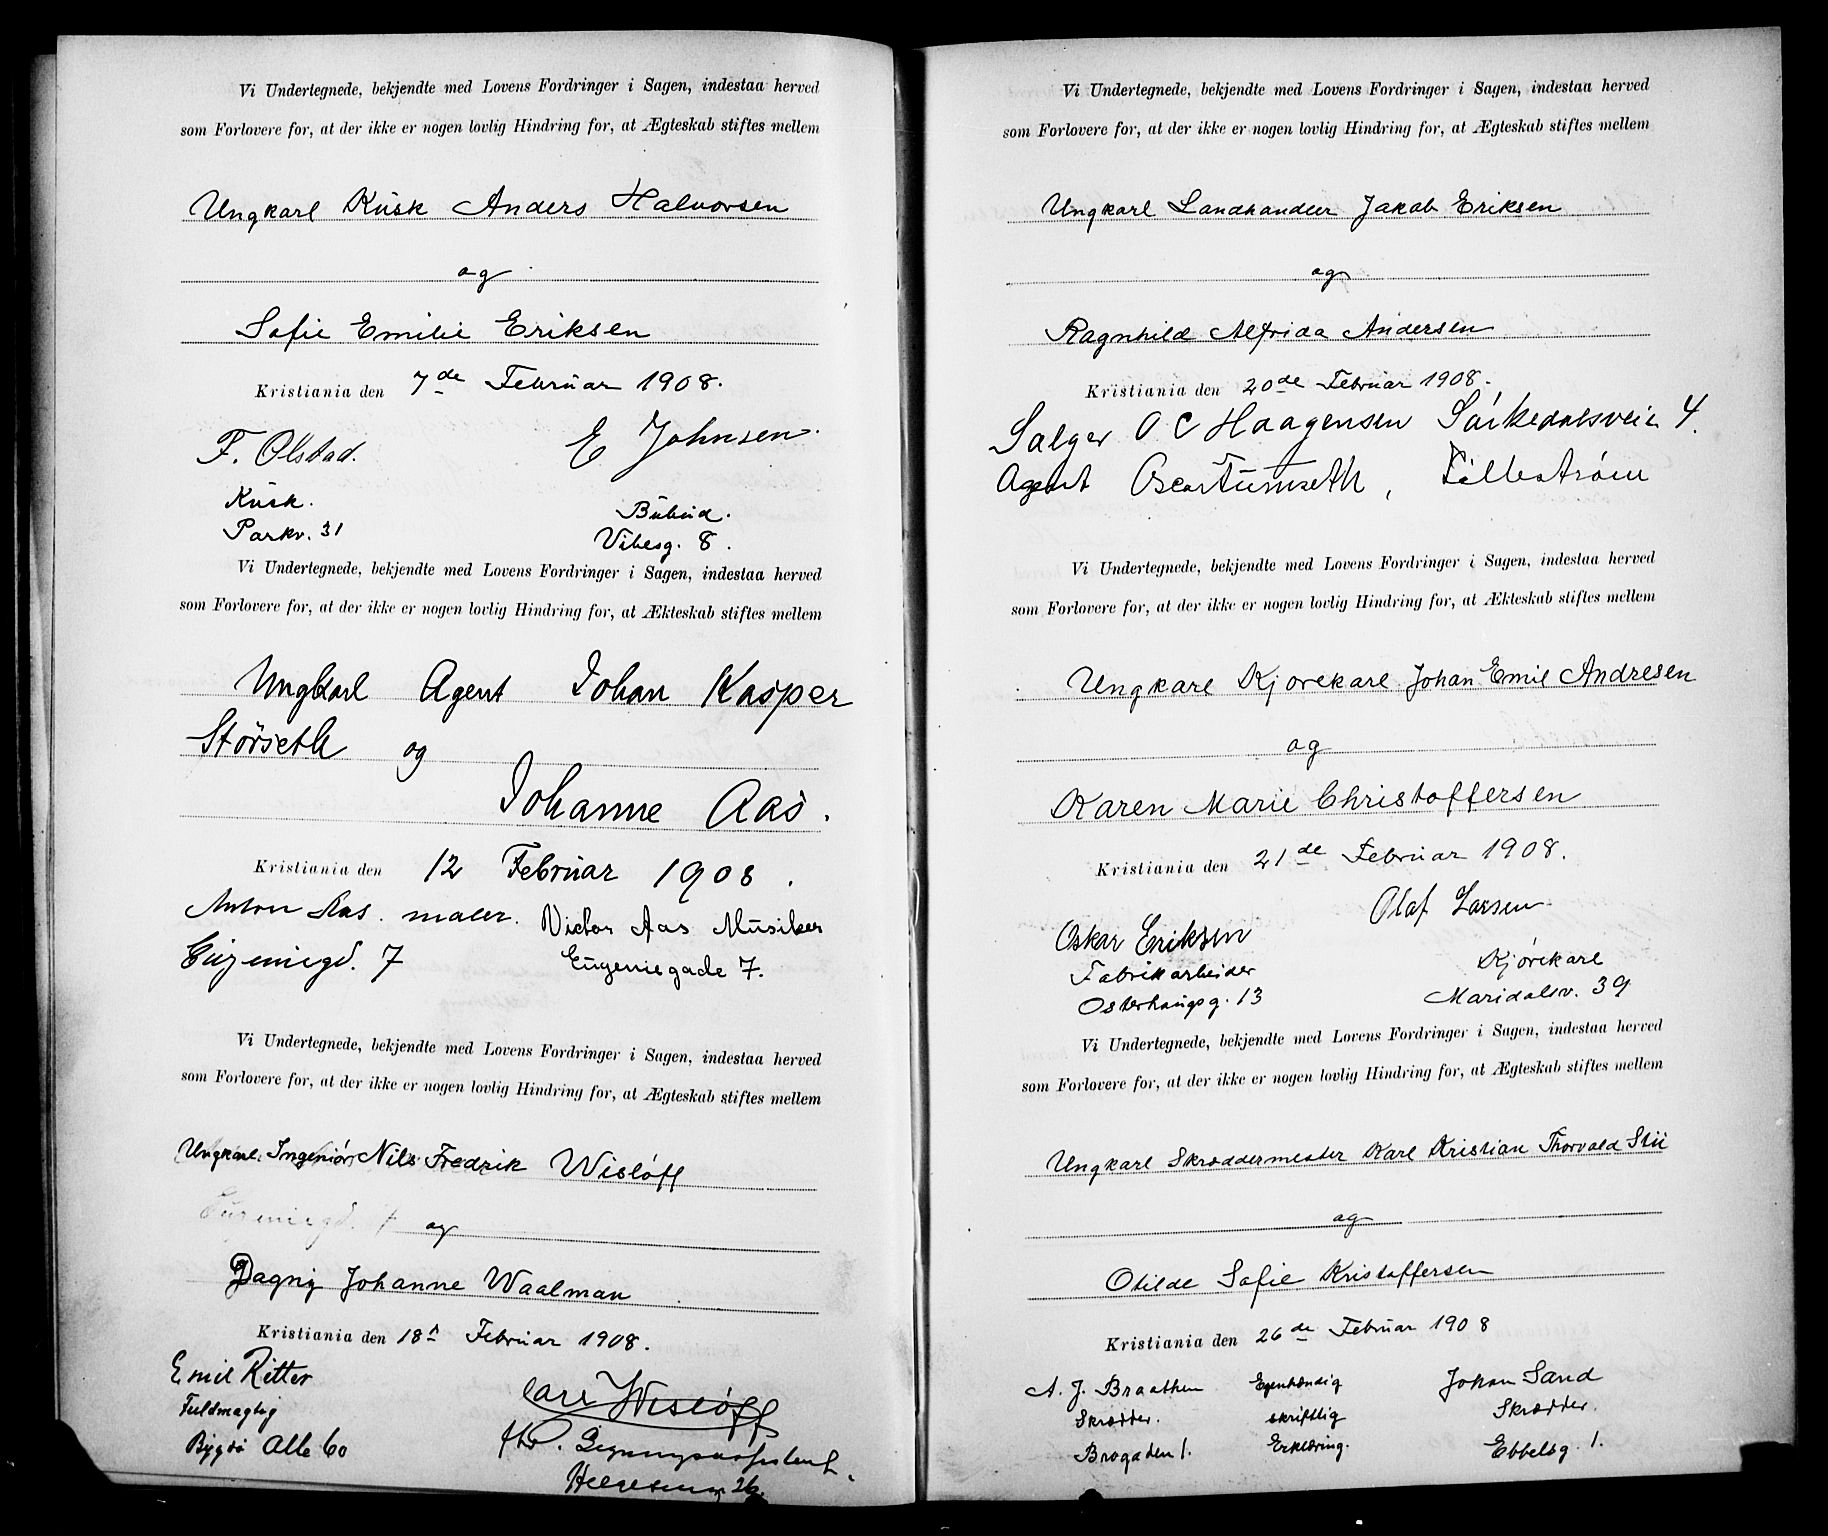 Vi Undertegnede, bekjendte med Lovens Fordringer i Sagen, indestaa herved
som Forlovere for, at der ikke er nogen lovlig Hindring for, at Ægteskab stiftes mellem
Ungkarl Kusk Anders Halvorsen
og
Sofie Emilie Eriksen
Kristiania den 7de Februar 1908.
F. Olstad. E Johnsen.
Kusk. Bübud.
Parkv. 31 Vibesg. 8.
Vi Undertegnede, bekjendte med Lovens Fordringer i Sagen, indestaa herved
som Forlovere for, at der ikke er nogen lovlig Hindring for, at Ækteskab stiftes mellem
Ungkarl Agent Johan Kasper
Störseth og
Johanne Aas.
Kristiania den 12 Februar 1908.
Anton Aas. maler. Victor Aas Musiker
Eugenigd. 7 Eugeniegade 7.
Vi Undertegnede, bekjendte med Lovens Fordringer i Sagen, indestaa herved
som Forlovere for, at der ikke er nogen lovlig Hindring for, at Ægteskab stiftes mellem
Ungkarl Ingeniör Nils Fredrik Wisløff
Eugeniegd. 7 og
Dagny Johanne Waalman
Kristiania den 18 Februar 1908.
Emil Ritter Carl Wisløff
Fuldmægtig
Bygdö Alle 60
26.
Vi Undertegnede, bekjendte med Lovens Fordringer i Sagen, indestaa herved
som Forlovere for, at der ikke er nogen lovlig Hindring for, at Ægteskab stiftes mellem
Ungkarl Landhandler Jakob Eriksen
og
Ragnhild Alfrida Andersen
Kristiania den 20de Februar 1908.
Sælger O C Haagensen Sörkedalsveien 4.
Agent Oscar Tumseth, Lillestrøm
Vi Undertegnede, bekjendte med Lovens Fordringer i Sagen, indestaa herved
som Forlovere for, at der ikke er nogen lovlig Hindring for, at Ækteskab stiftes mellem
Ungkarl Kjørekarl Johan Emil Andresen
og
Karen Marie Christoffersen
Kristiania den 21de Februar 1908.
Olaf Larsen
Oskar Eriksen
Fabrikarbeider Kjørekarl
Osterhausg. 13 Maridalsv. 39
Vi Undertegnede, bekjendte med Lovens Fordringer i Sagen, indestaa herved
som Forlovere for, at der ikke er nogen lovlig Hindring for, at Ægteskab stiftes mellem
Ungkarl Skræddermester Karl Kristian Thorvald Stii
og
Otilde Sofie Kristoffersen
Kristiania den 26de Februar 1908
A. J. Braathen Egenhændig Johan Sand
Skrædder. skriftlig Skrædder.
Brogaden 1. Erklæring. Ebbelsg. 1.